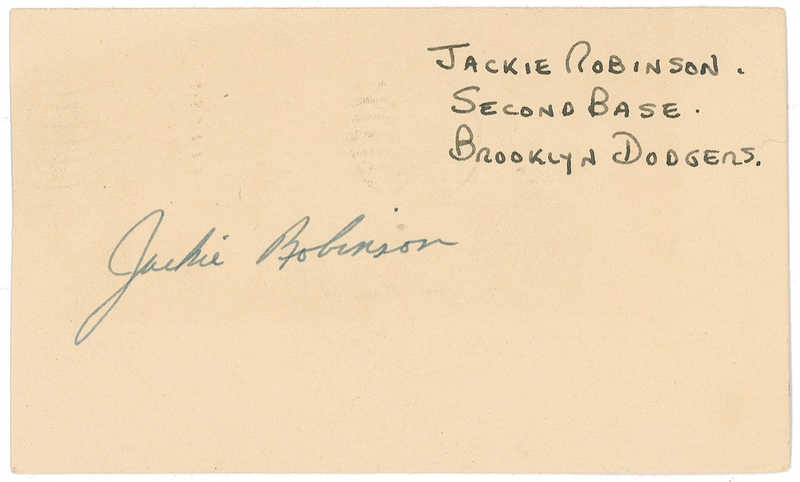 JACKIE ROBINSON.
SECOND BASE.
BROOKLYN DODGERS.
Jackie Robinson